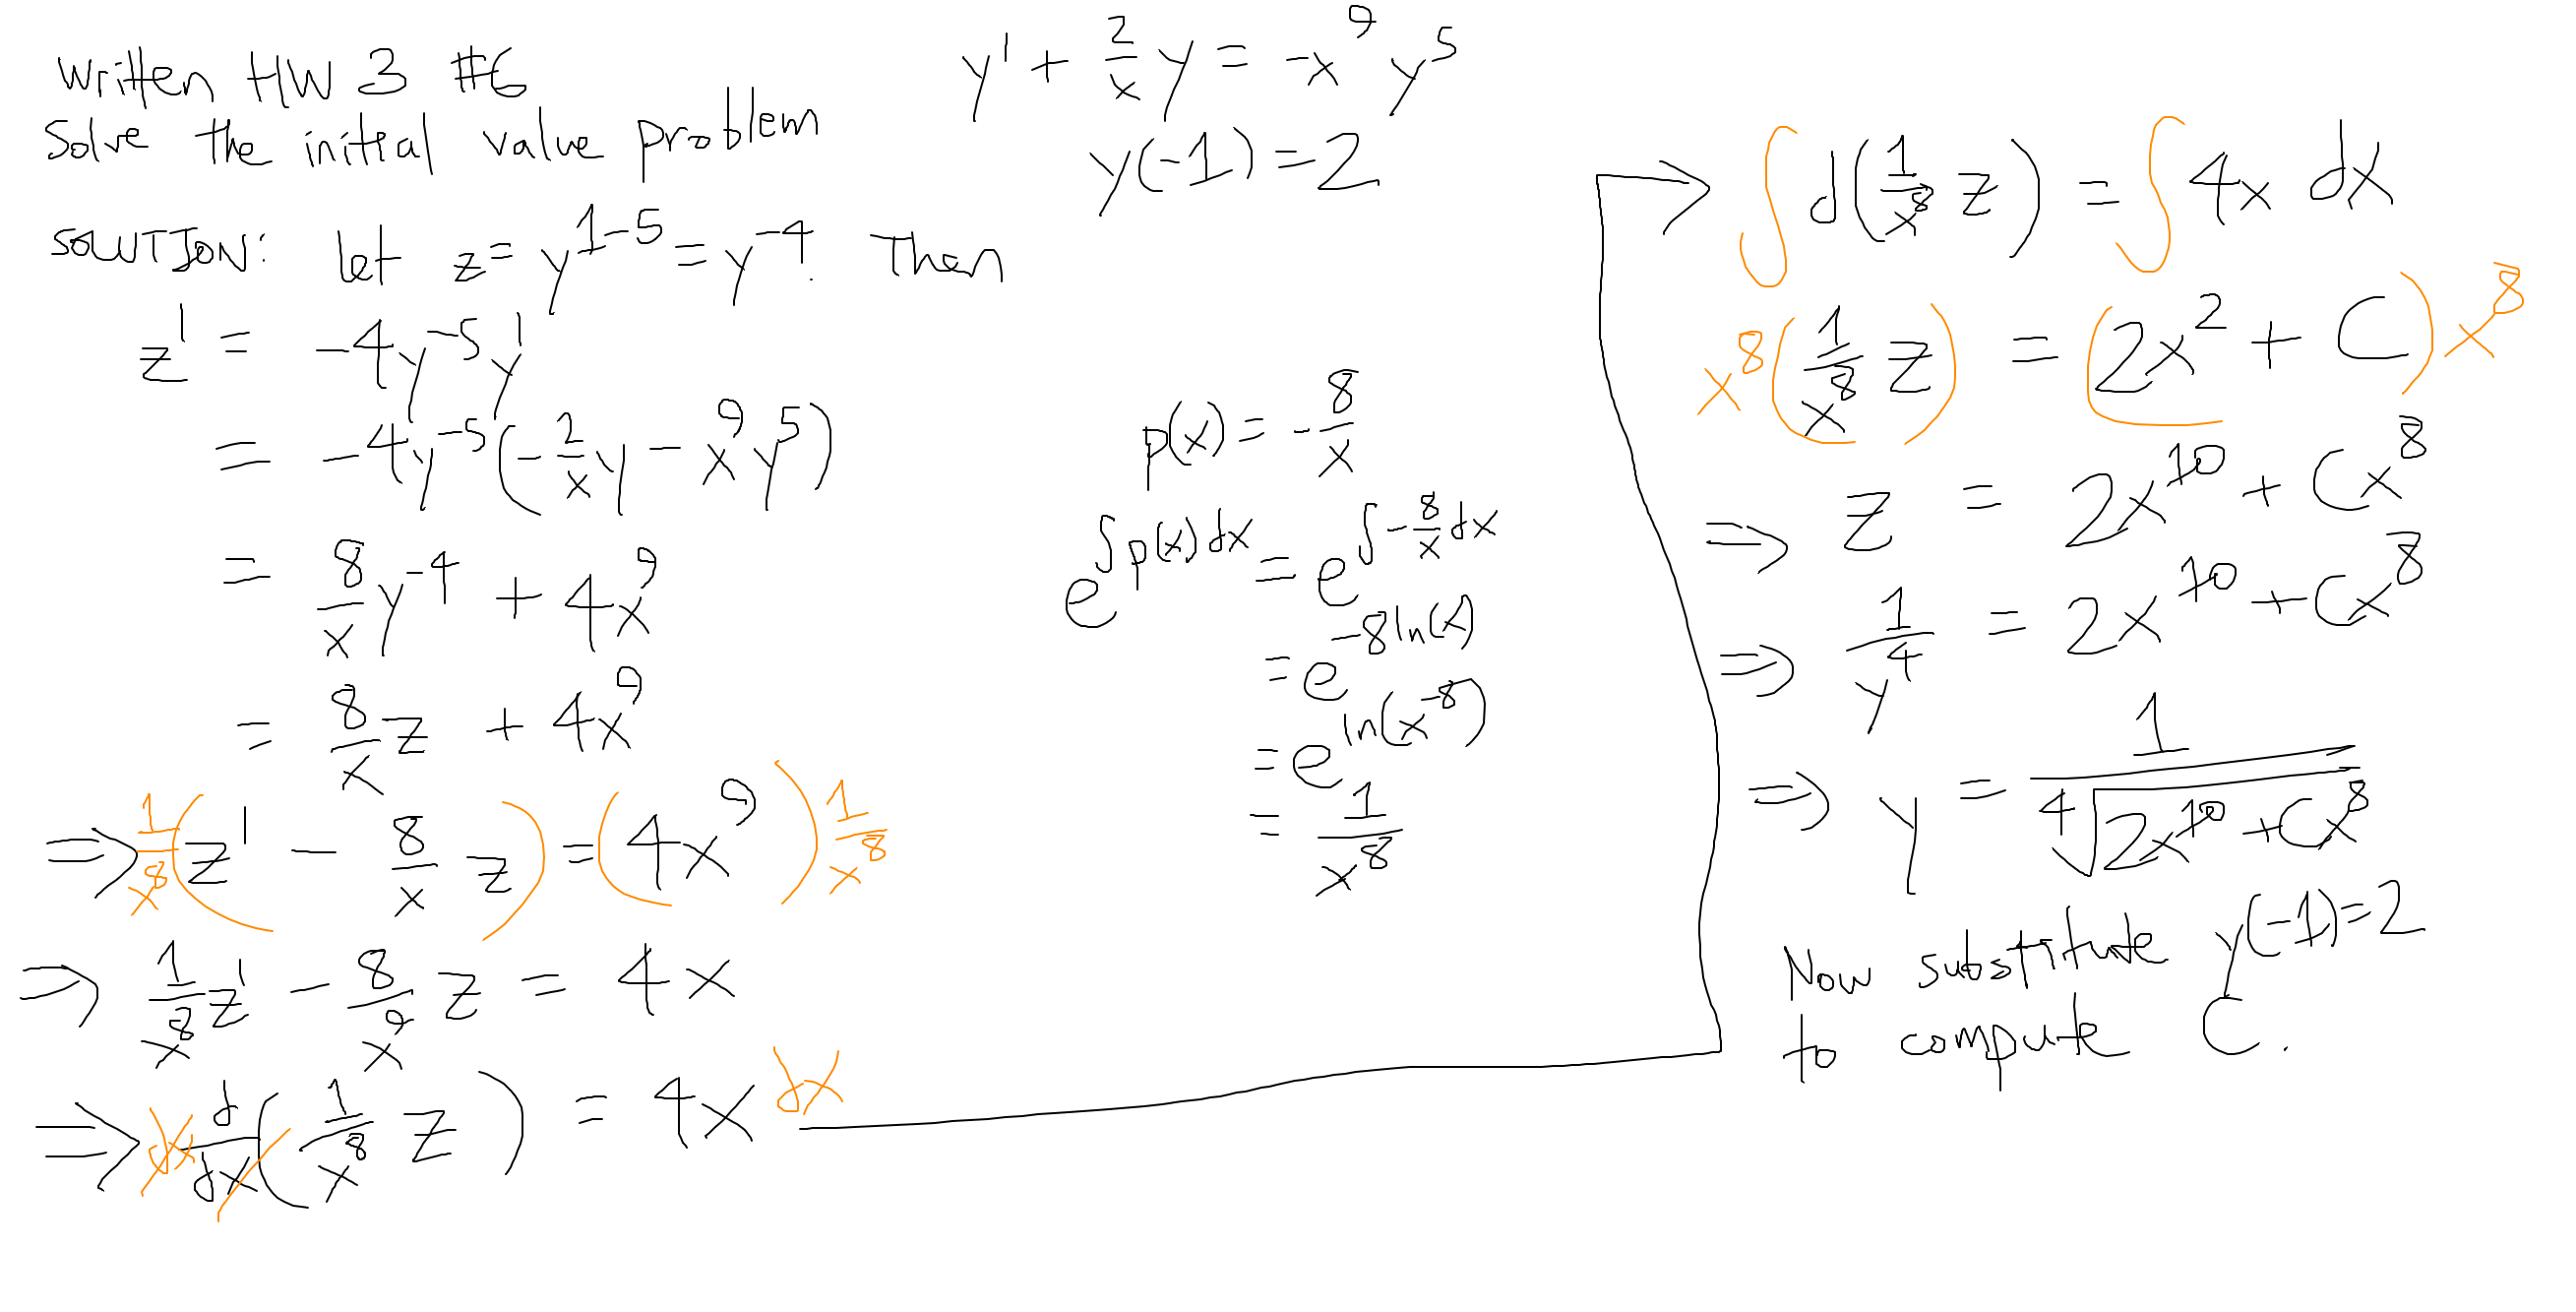 Written HW 3 #6
Solve the initial value problem
y' + 2/x y = -x^9 y^5
y(-1) = 2
SOLUTION: let z = y^{1-5} = y^{-4}. Then
z' = -4y^{-5}y'
= -4y^{-5}(-2/x y - x^9 y^5)
= 8/x y^{-4} + 4x^9
= 8/x z + 4x^9
⇒ 1/x^8 (z' - 8/x z) = (4x^9) 1/x^8
⇒ 1/x^8 z' - 8/x^9 z = 4x
⇒ dx d/dx (1/x^8 z) = 4x dx
p(x) = -8/x
e^{∫p(x)dx} = e^{∫-8/x dx}
= e^{-8ln(x)}
= e^{ln(x^{-8})}
= 1/x^8
→ ∫ d(1/x^8 z) = ∫ 4x dx
x^8 (1/x^8 z) = (2x^2 + C) x^8
⇒ z = 2x^{10} + Cx^8
⇒ 1/y^4 = 2x^{10} + Cx^8
⇒ y = 1/∜(2x^{10} + Cx^8)
Now substitute y(-1)=2
to compute C.